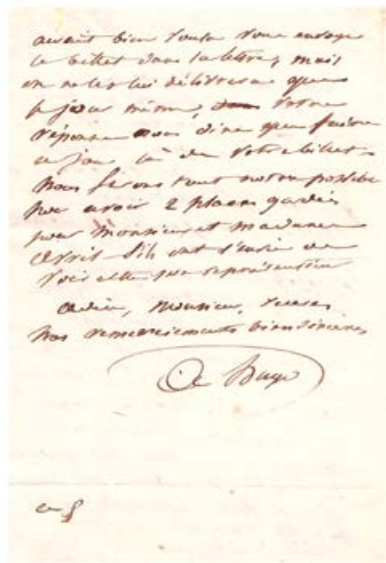 aurait bien voulu vous envoyer
le billet dans sa lettre, mais
on ne les lui délivrera que
le jour même, votre
réponse nous dira que faire
ce jour là de votre billet.
Nous ferons tout notre possible
pour avoir 2 places gardées
pour Monsieur et madame
s'ils ont l'envie de
voir cette représentation
adieu, Monsieur, recevez
nos remerciements bien sincères,
Hugo